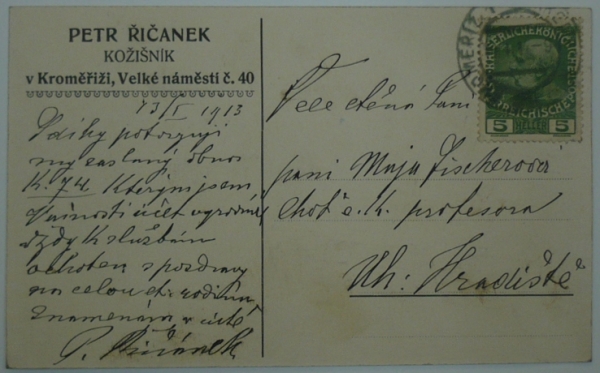 PETR ŘIČANEK
KOŽIŠNÍK
v Kroměříži, Velké náměstí č. 40
13/I 1913
Vdíky potvrzuji
my zaslaný obnos
K. 74. Kterým jsem
účet vyrovnal
vždy K službám
ochoten s pozdravy
na celou ct. rodinu
znamenám v úctě
P. Řičánek
Vele ctěná Paní
paní Maja Fischerová
choť c. K. profesora
Uh: Hradiště
KAISERLICHE KÖNIGLICHE
ÖSTERREICHISCHE
5 5